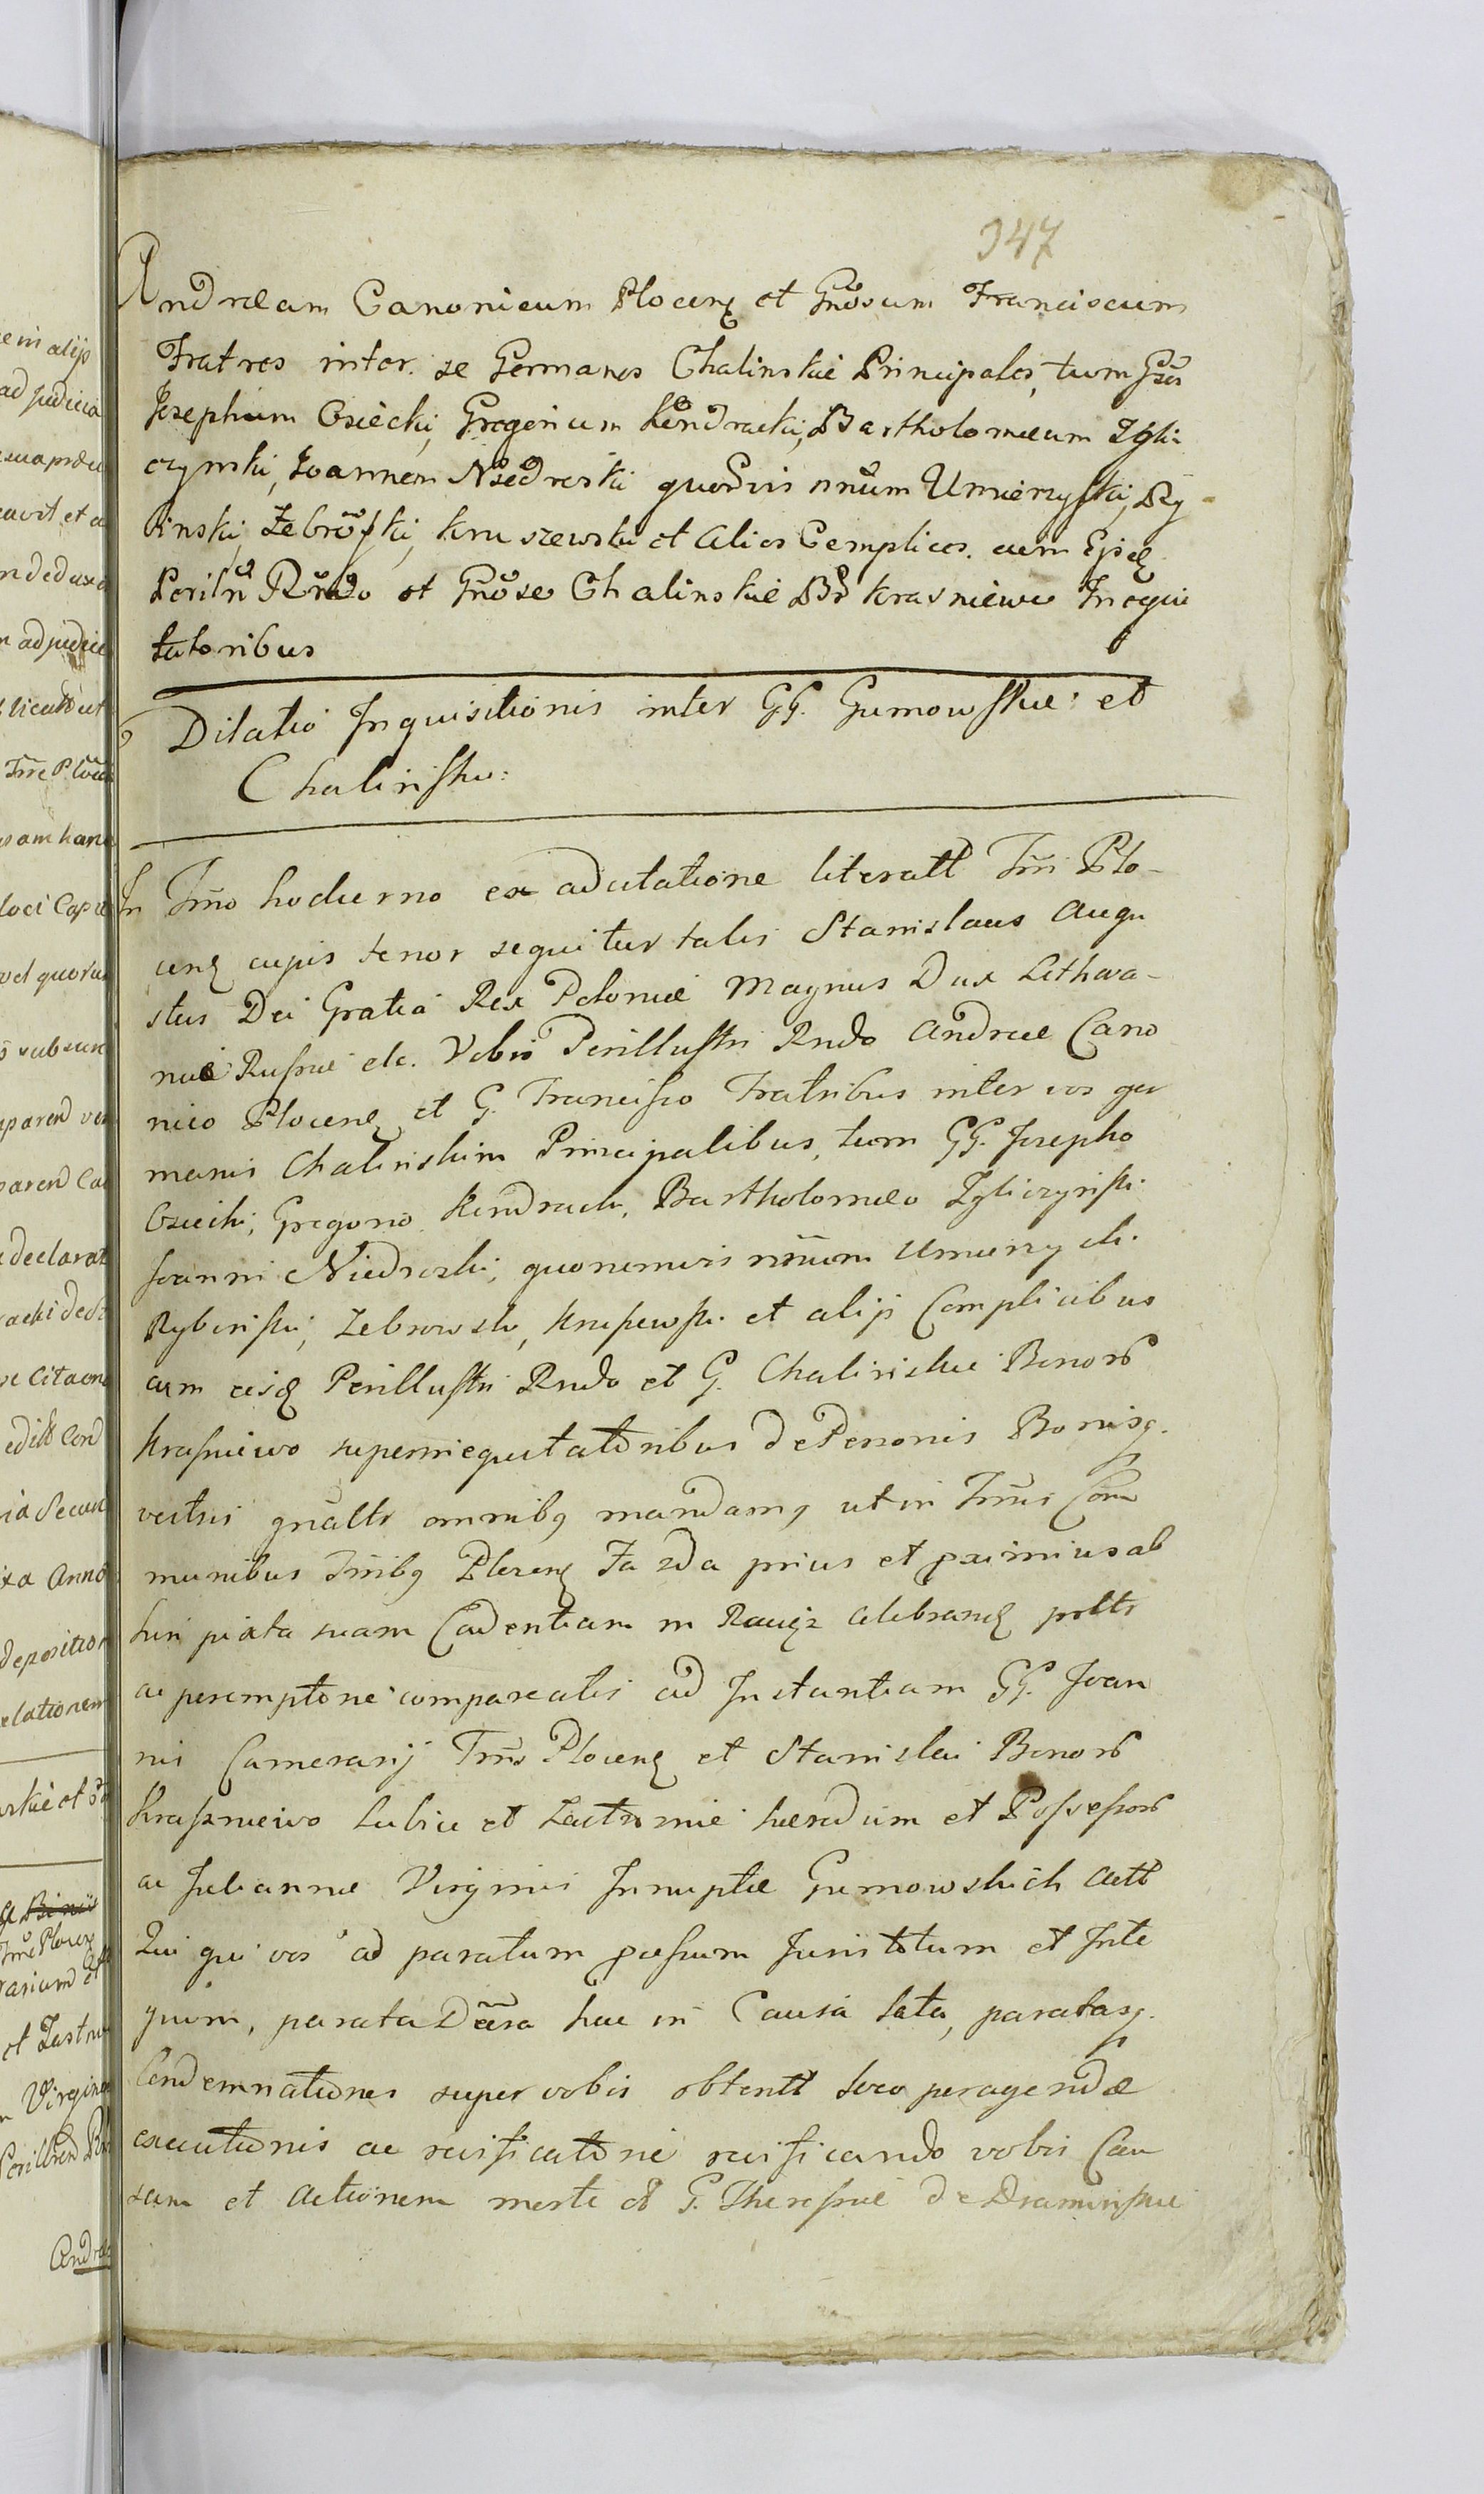 347
Andream Canonicum Plocen et Gnosum Franciscum
Fratres inter se Germanos Chalinskie Principales, tum Gsos
Josephum Osiecki, Gregorium Kendracki, Bartholomeum Zgli-
czynski, Joannem Niedroski quemvis nnum Umierzyski, Ry-
binski, Zebrowski, Kruszewski et alios Complices cum Ejsd
Perilri Rndo et Gnoso Chalinskie Br Krasniewo Inequi
tatoribus
Dilatio Inquisitionis inter GG. Gumowskie: et
Chalinskie:
In Tmno hodierno ex adcitatione literatt Tmi Plo-
cens cujus tenor sequitur talis Stanislaus Augu
stus Dei Gratia Rex Poloniae Magnus Dux Lithva-
niae Russiae etc. Vobis Perillustri Rndo Andreae Cano
nico Plocens et G. Francisco Fratribus inter vos ger
manis Chalinskim Principalibus, tum GG. Josepho
Osiecki, Gregorio Kendracki, Bartholomeo Zgliczynski
Joanni Niedroski, quonimvis nnum Umierzycki
Rybinski, Zebrowski, Kruszewski et alijs Complicibus
cum eisd Perillustri Rndo et G. Chalinskie Bonor
Krasniewo superinequitatoribus de Personis Bonisq.
vestris gnaltr omnibq mandamq ut in Tmis Com
munibus Tmibq Plocens Fa 2da prius et proximius ab
hin juxta suam Cadentiam in Raciąz celebrand psltr
ac peremptorie compareatis ad Instantiam GG. Joan
nis Camerarij Tmis Plocens et Stanislai Bonor
Krasniewo Lubice et Zastromie haeredum et Possessor
ac Julianna Virginis Innuptae Gumowskich Actt
Qui qui vos ad paratum passum Juris totum et Inte
grum, parata Dcra hac in Causa lata, paratasq.
Condemnationes super vobis obtentt loco peragendae
executionis ac reificatione reificando vobis Cau
sam et Actionem morte G. Theresiae de Draminskie